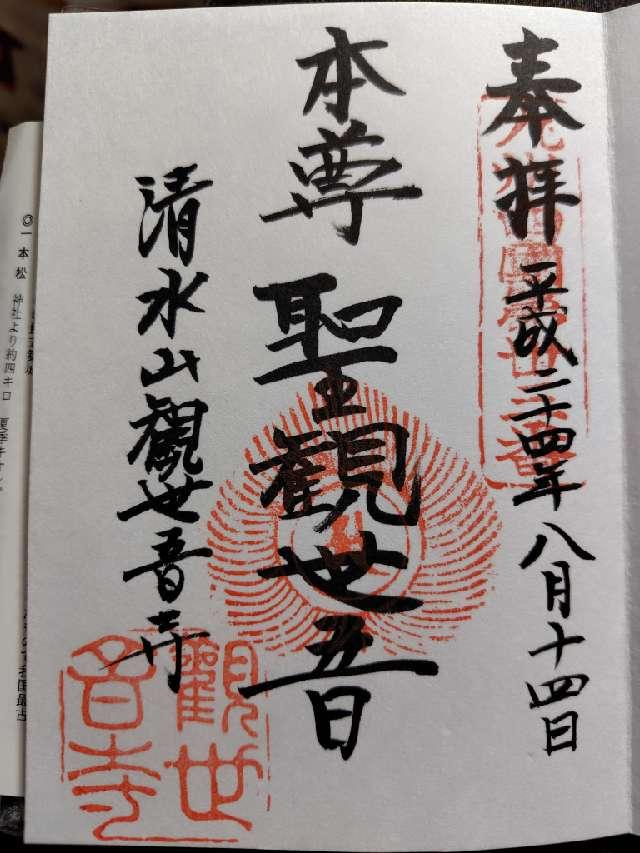 奉拝 平成二十四年八月十四日
本尊 聖観世音
清水山観世音寺
観世音寺
◎一本松 神社より約四キロ